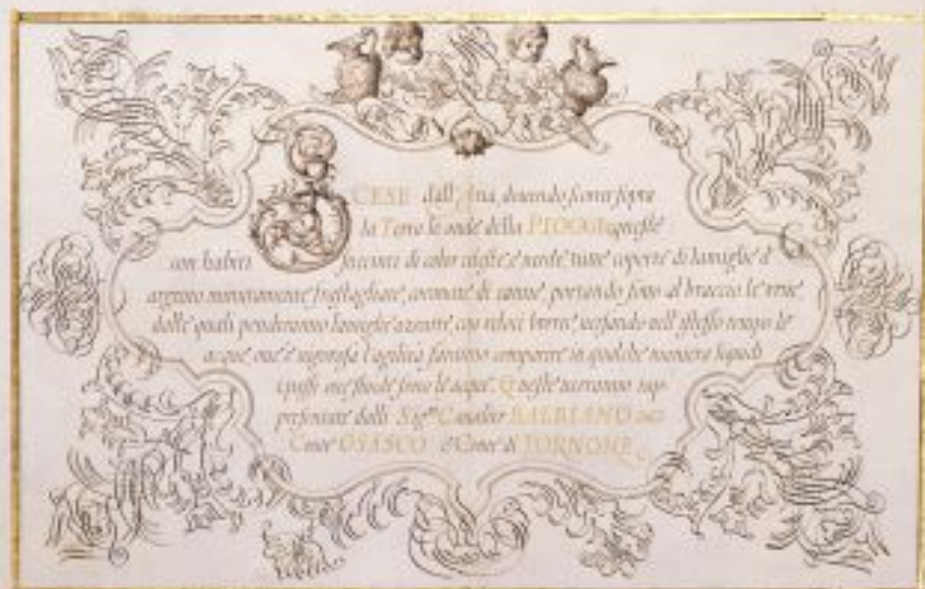 SCESE dall'Aria, douendo scorrer sopra
la Terra le onde della PIOGGIA queste
con habiti succinti di color celeste, e uerde, tutte coperte di lamiglie d'
argento minutamente frastagliate, coronate di canne, portando sotto al braccio le vrne
dalle quali penderanno lamiglie azzurre, con ueloci uersando nell'istesso tempo le
acque, oue e l'agilità faranno comparire in qualche maniera liquidi
i passi, oue sono le acque. Queste uerranno rap-
presentate dalli Sig.ri Caualier BALBIANO
Conte OSASCO e Conte di TORNONE